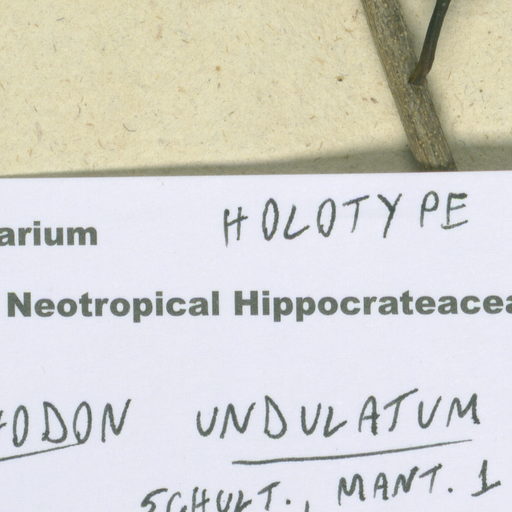 arium HOLOTYPE
Neotropical Hippocrateacea
ODON UNDULATUM
SCHULT., MANT. 1